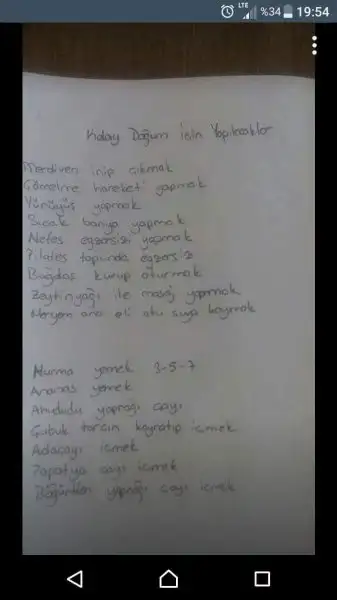 LTE %34 19:54
Kolay Doğum İçin Yapılacaklar
Merdiven inip çıkmak
Çömelme hareketi yapmak
Yürüyüş yapmak
Sıcak banyo yapmak
Nefes egzersizi yapmak
Pilates topunda egzersiz
Bağdaş kurup oturmak
Zeytinyağı ile masaj yapmak
Meryem ana eli otu suya koymak
Hurma yemek 3-5-7
Ananas yemek
Ahududu yaprağı çayı
Çubuk tarçın kaynatıp içmek
Adaçayı içmek
Papatya çayı içmek
Böğürtlen yaprağı çayı içmek